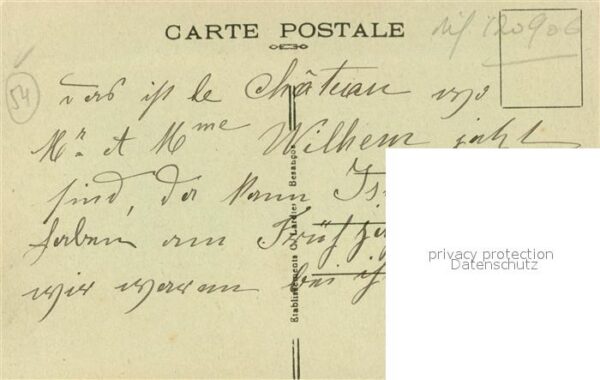 CARTE POSTALE
120906
54
das ist le Château wo
Mr et Mme Wilhem jetzt
sind, da kann
haben am Früh
wir waren bei
Etablissements C. Lardier, Besançon
privacy protection
Datenschutz